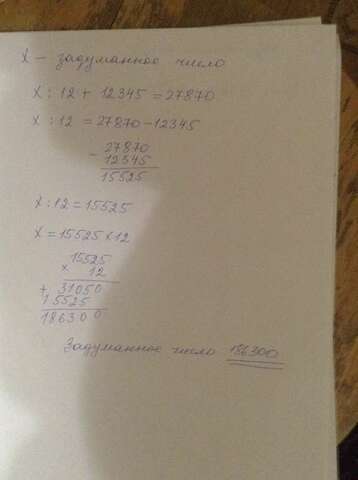 X - задуманное число
X : 12 + 12345 = 27870
X : 12 = 27870 - 12345
- 27870
12345
15525
X : 12 = 15525
X = 15525 × 12
15525
× 12
+ 31050
15525
186300
Задуманное число 186300